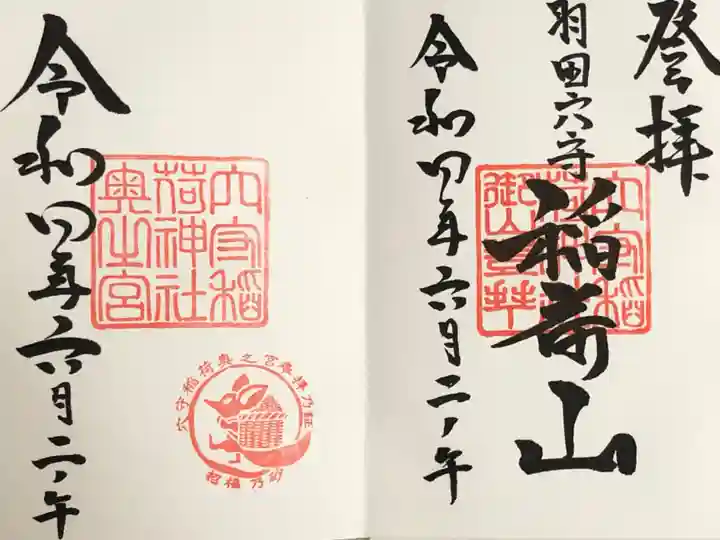 登拝
羽田穴守
稲荷山
令和四年六月二ノ午
穴守稲
荷神社
御山登拝
令和四年六月二ノ午
穴守稲
荷神社
奥之宮
穴守稲荷奥之宮参拝乃証
招福乃砂